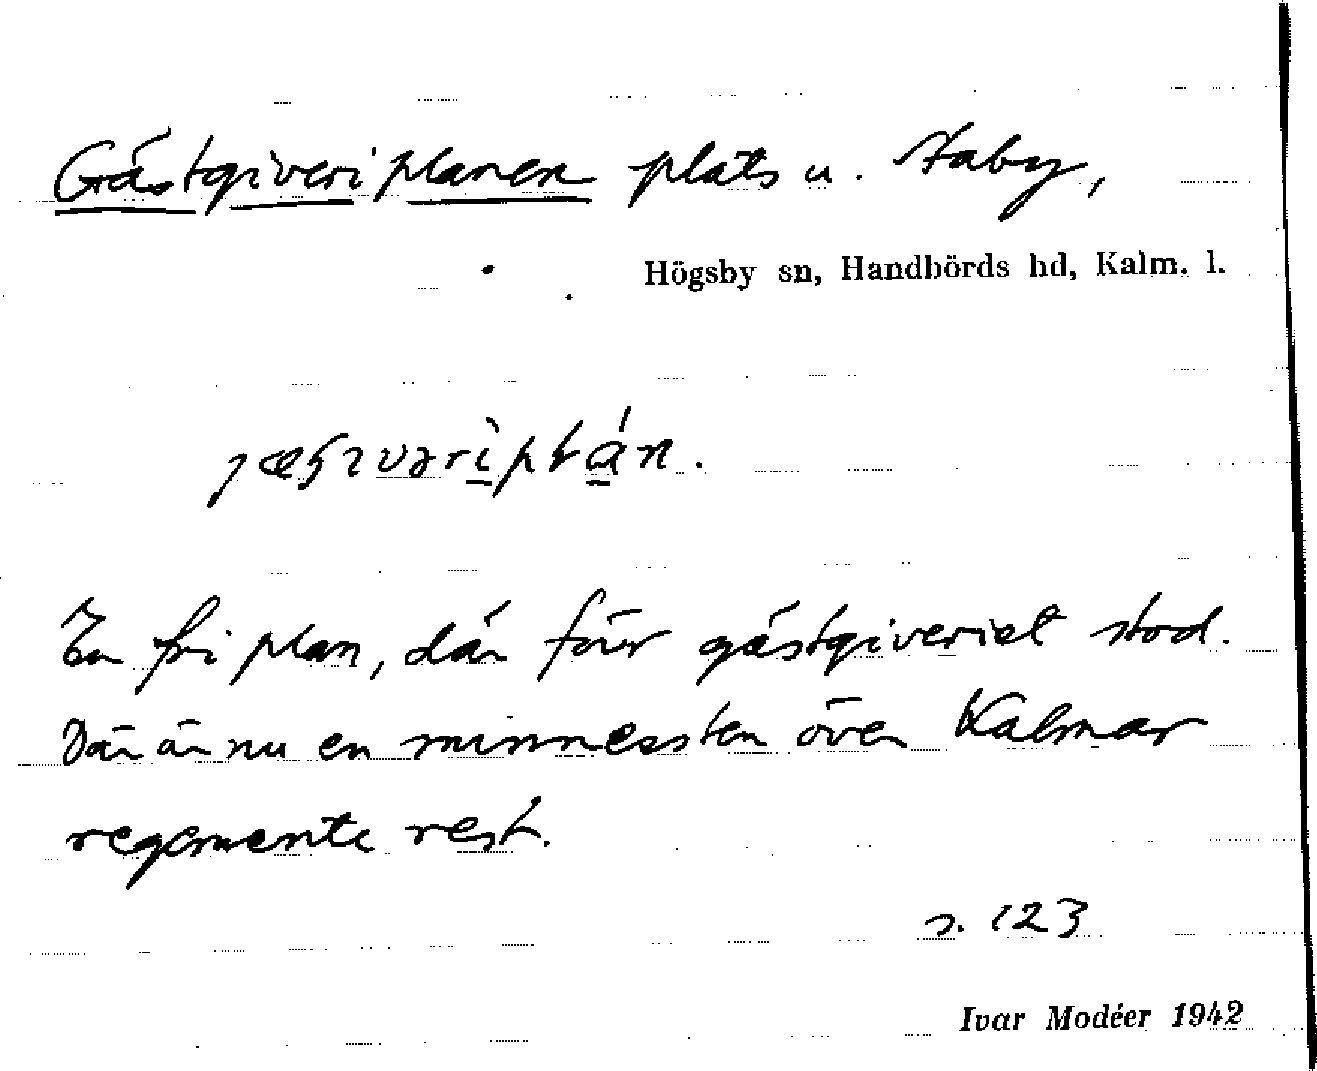 Gästgiveriplanen plats u. Staby,
Högsby sn, Handbörds hd, Kalm. l.
En fri plan, där förr gästgiveriet stod.
Där är nu en minnessten över Kalmar
regemente rest.
s. 123
Ivar Modéer 1942